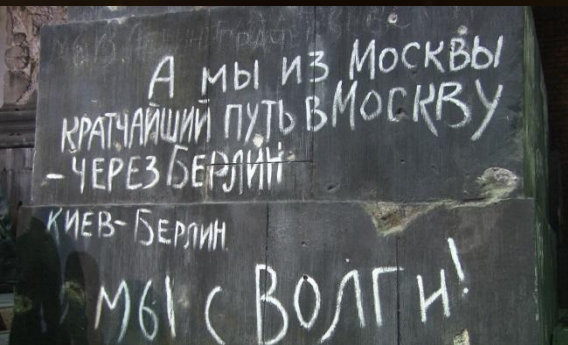 А мы из Москвы
кратчайший путь в Москву
- через Берлин
Киев-Берлин
мы с Волги!